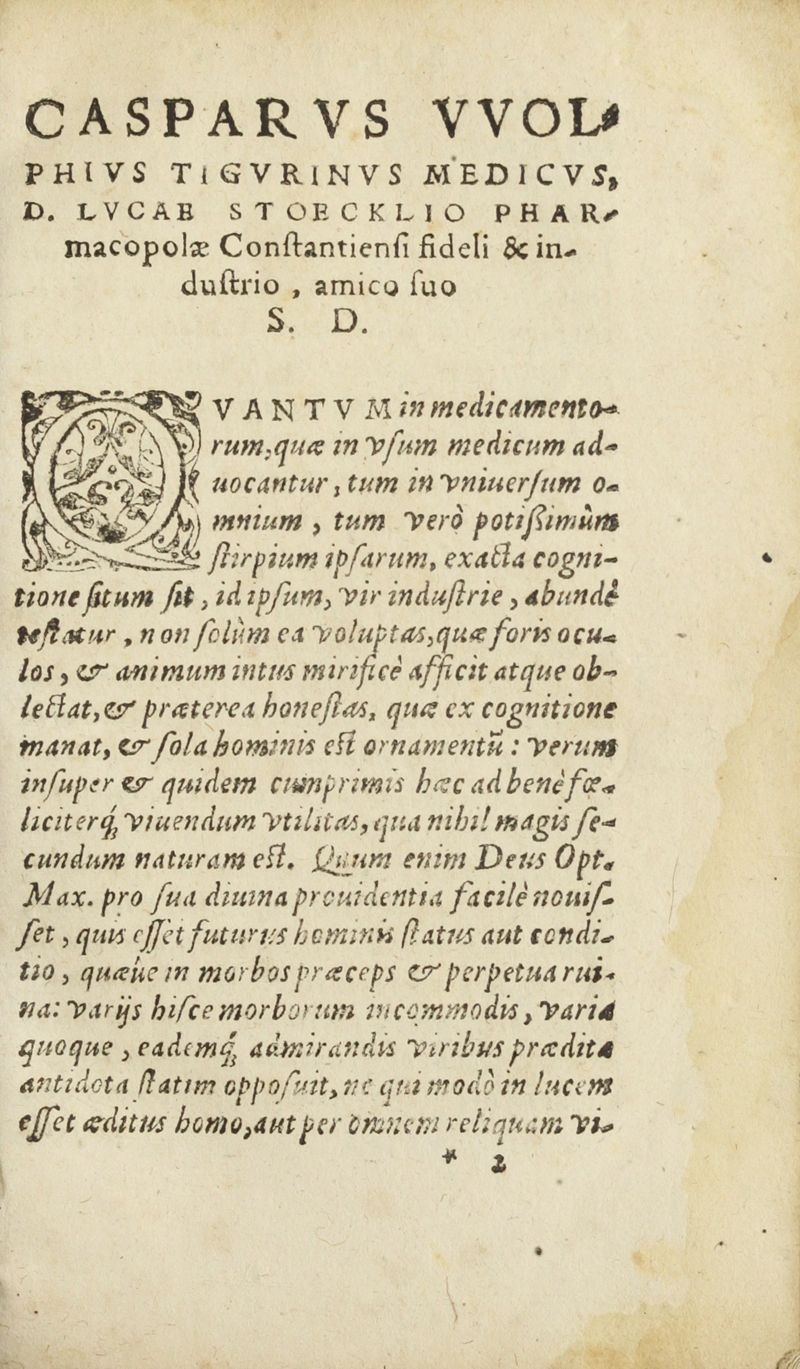 CASPARVS VVOL-
PHIVS TIGVRINVS MEDICVS,
D. LVCAE STOECKLIO PHAR-
macopolæ Conſtantienſi fideli & in-
duſtrio , amico ſuo
S. D.
QVANTVM in medicamento-
rum, quæ in vſum medicum ad-
uocantur, tum in vniuerſum o-
mnium , tum verò potiſsimùm
ſtirpium ipſarum, exacta cogni-
tione ſitum ſit, id ipſum, vir induſtrie, abundè
teſtatur, non ſolùm ea voluptas, quæ foris ocu-
los, & animum intus mirificè afficit atque ob-
lectat, & præterea honeſtas, quæ ex cognitione
manat, & ſola hominis eſt ornamentū : verum
inſuper & quidem cumprimis hæc ad benè fœ-
liciterq́; viuendum vtilitas, qua nihil magis ſe-
cundum naturam eſt. Quum enim Deus Opt.
Max. pro ſua diuina prouidentia facilè nouiſ-
ſet, quis eſſet futurus hominis ſtatus aut condi-
tio, quæue in morbos præceps & perpetua rui-
na: varijs hiſce morborum incommodis, varia
quoque , eademq́; admirandis viribus prædita
antidota ſtatim oppoſuit, ne qui modò in lucem
eſſet æditus homo, aut per omnem reliquam vi-
* 2